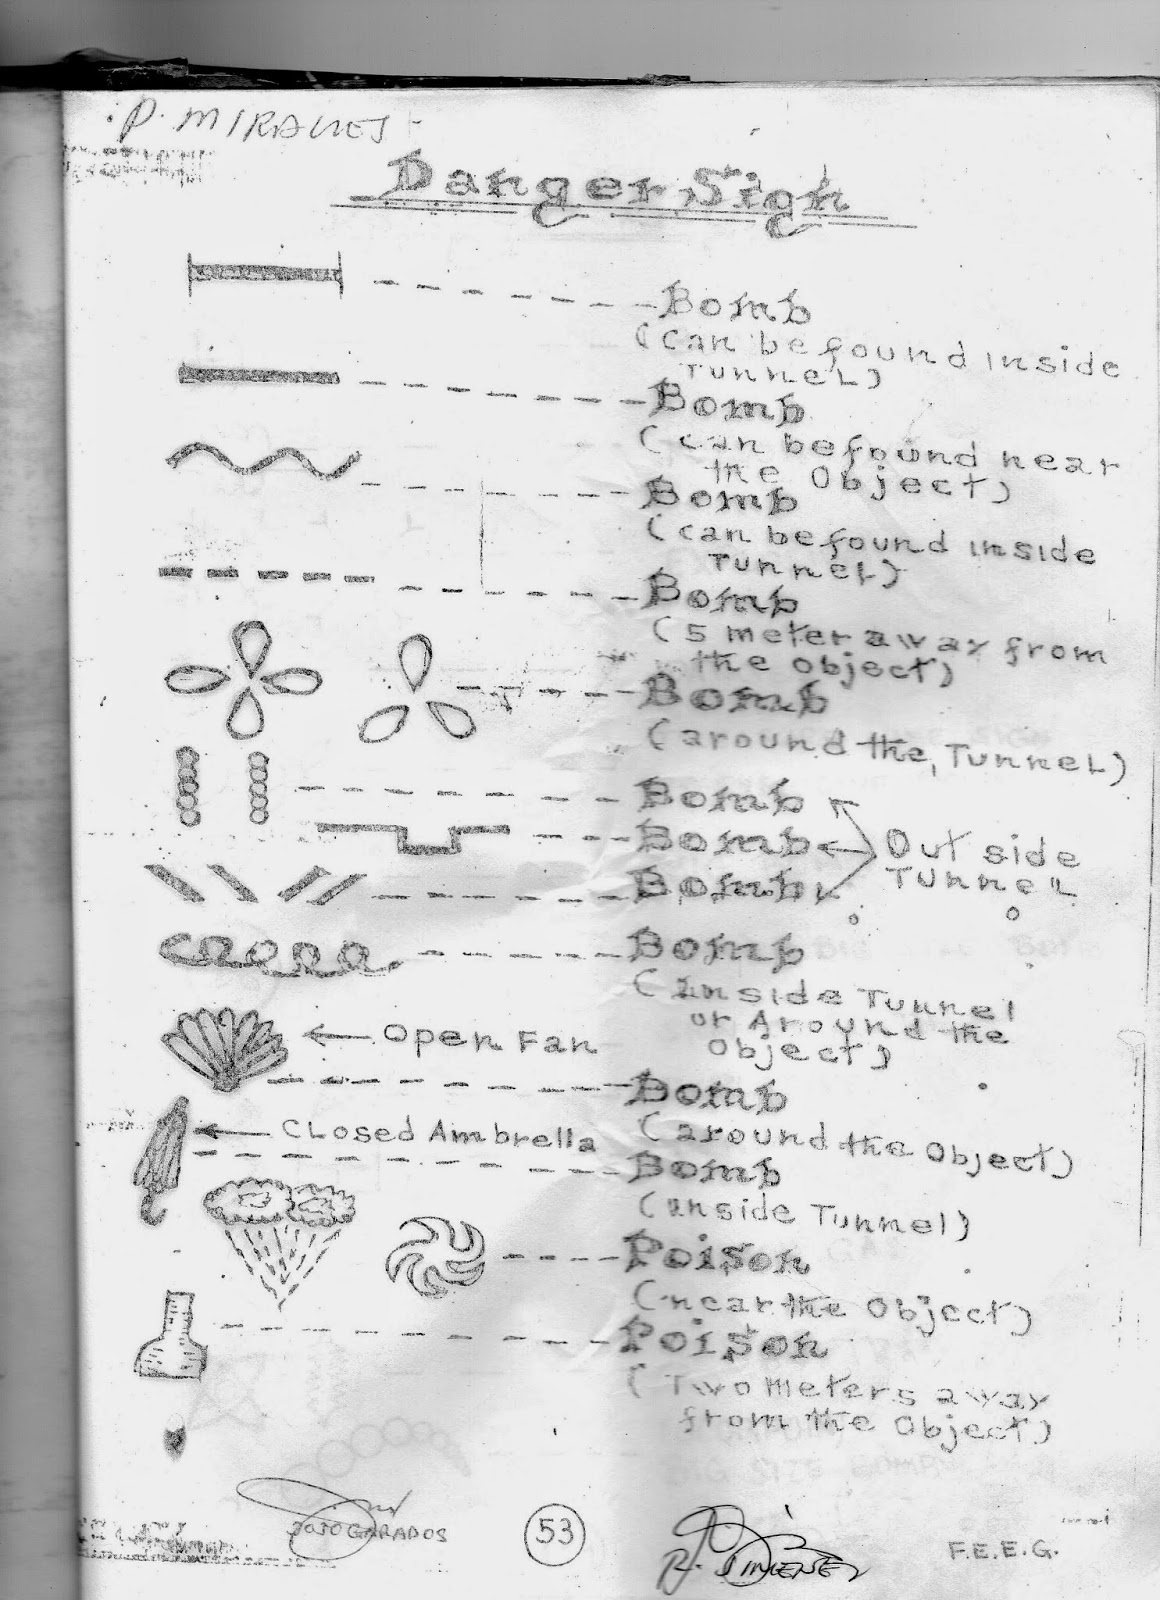 P. MIRALLES
Danger Sign
Bomb
(can be found inside
Tunnel)
Bomb
(can be found near
the Object)
Bomb
(can be found inside
Tunnel)
Bomb
(5 meter away from
the object)
Bomb
(around the, Tunnel)
Bomb
Bomb
Out side
Tunnel
Bomb
Bomb
(inside Tunnel
or Around the
Object)
Open Fan
Bomb
(around the Object)
CLosed Ambrella
Bomb
(inside Tunnel)
Poison
(near the Object)
Poison
(Two Meters away
from the Object)
JOJO GARADOS
53
R. JIMENEZ
F.E.E.G.